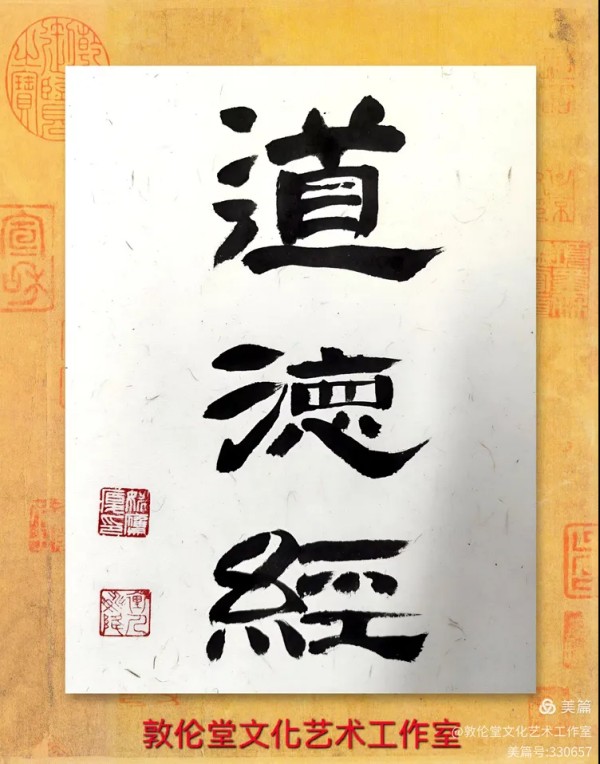 道
德
經
敦伦堂文化艺术工作室
美篇
@敦伦堂文化艺术工作室
美篇号:330657